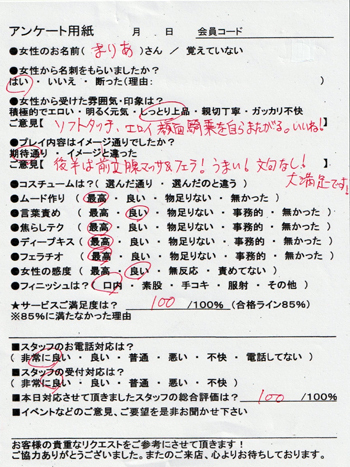 アンケート用紙　　月　日　会員コード
●女性のお名前( まりあ )さん ／ 覚えていない
●女性から名刺をもらいましたか?
はい ・ いいえ ・ 断った(理由: )
●女性から受けた雰囲気・印象は?
積極的でエロい・明るく元気・しっとり上品・親切丁寧・ガッカリ不快
ご意見【ソフトタッチ、エロイ 顔面騎乗を自らまたがる。いいね!
●プレイ内容はイメージ通りでしたか?
期待通り ・ イメージと違った
ご意見【後半は前立腺マッサ&フェラ! うまい! 文句なし!
大満足です!
●コスチュームは?( 選んだ通り ・ 選んだのと違う )
●ムード作り ( 最高 ・ 良い ・ 物足りない ・ 無かった )
●言葉責め ( 最高 ・ 良い ・ 物足りない ・ 事務的 ・ 無かった )
●焦らしテク ( 最高 ・ 良い ・ 物足りない ・ 事務的 ・ 無かった )
●ディープキス ( 最高 ・ 良い ・ 物足りない ・ 事務的 ・ 無かった )
●フェラチオ ( 最高 ・ 良い ・ 物足りない ・ 事務的 ・ 無かった )
●女性の感度 ( 最高 ・ 良い ・ 無反応 ・ 責めてない )
●フィニッシュは?( 口内 ・ 素股 ・ 手コキ ・ 服射 ・ その他 )
★サービスご満足度は? 100 /100% (合格ライン85%)
※85%に満たなかった理由
■スタッフのお電話対応は?
( 非常に良い ・ 良い ・ 普通 ・ 悪い ・ 不快 ・ 電話してない )
■スタッフの受付対応は?
( 非常に良い ・ 良い ・ 普通 ・ 悪い ・ 不快 )
■本日対応させて頂きましたスタッフの総合評価は? 100 /100%
■イベントなどのご意見、ご要望を是非お聞かせ下さい
お客様の貴重なリクエストをご参考にさせて頂きます!
ご協力ありがとうございました。またのご来店、心よりお待ちしております。